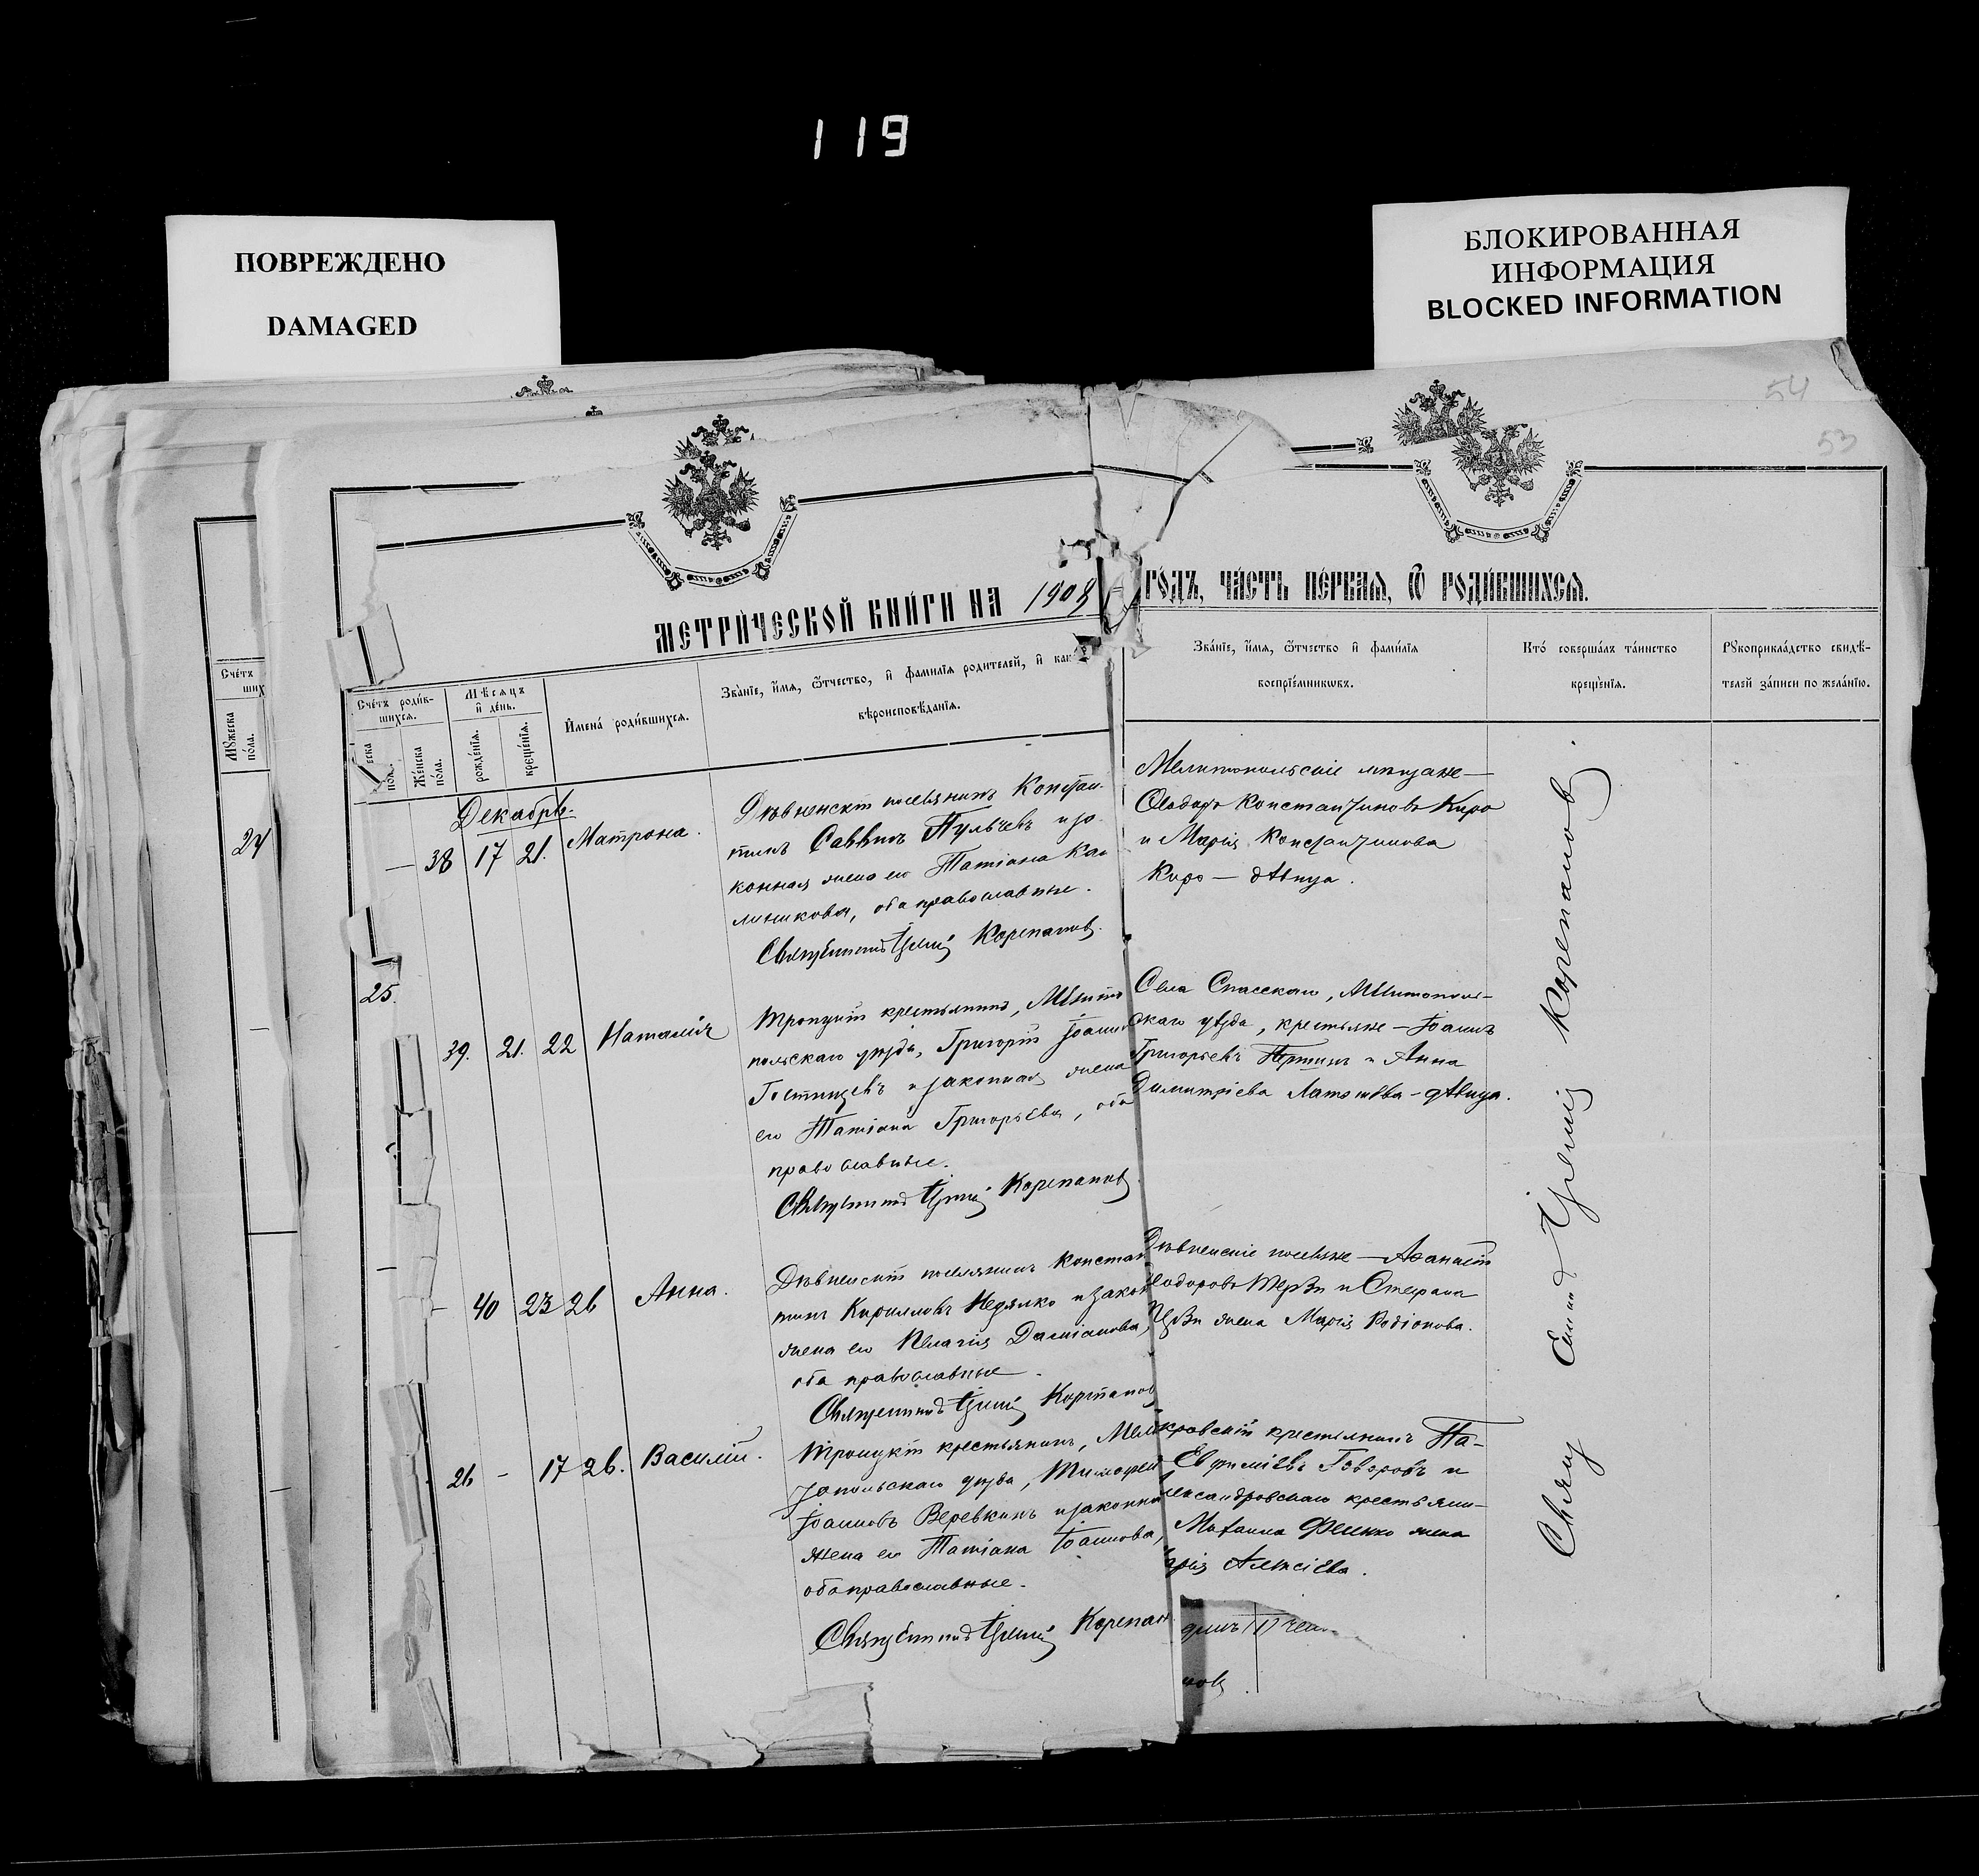 119
ПОВРЕЖДЕНО
DAMAGED
БЛОКИРОВАННАЯ
ИНФОРМАЦИЯ
BLOCKED INFORMATION
54
53
МЕТРИ́ЧЕСКОЙ КНИ́ГИ НА 1908
ГО́ДЪ, ЧА́СТЬ ПЕ́РВАЯ, Ѿ РОДИ́ВШИХСЯ.
Сче́тъ
ших
Мꙋжеска
по́ла.
24
Сче́тъ роди́в-
шихся.
Мѣсяцъ
и де́нь.
Имена́ роди́вшихся.
Зва́нїе, и́мя, ѻ́тчество, и фамилїя родителей, и как
вѣроисповѣ́данїя.
еска
пол.
Же́нска
по́ла.
рожде́нїя.
креще́нїя.
Зва́нїе, и́мя, ѻ́тчество и фами́лїя
воспрїе́мниковъ.
Кто́ соверша́лъ та́инство
креще́нїя.
Рꙋкоприкла́дство свидѣ́-
телей за́писи по жела́нїю.
Декабрь.
— 38 17 21. Матрона.
Дѣвненскій поселянинъ Констан-
тинъ Саввинъ Пульчевъ и за-
конная жена его Татіана Ка
линикова, оба православные.
Священникъ Іеремій Корепановъ.
Мелитопольскіе мѣщане —
Ѳеодоръ Константиновъ Киро
и Марія Константинова
Киро — дѣвица.
25.
39. 21. 22 Наталія
Троицкій крестьянинъ, Мелито
польскаго уѣзда, Григорій Іоанн
Гостищевъ и законная жена
его Татіана Григорьева, оба
православные.
Священникъ Іеремій Корепановъ.
Села Спасскаго, Мелитополь-
скаго уѣзда, крестьяне — Іоаннъ
Григорьевъ и Анна
Димитріева — дѣвица.
— 40 23 26 Анна.
Дѣвненскій поселянинъ Констан
тинъ Кирилловъ Недялко и закон
жена его Пелагія Даміанова,
оба православные.
Священникъ Іеремій Корепанов
Дѣвненскіе поселяне — Аѳанасій
Ѳеодоровъ Терзи и Стефана
жена Марія Родіонова.
26 — 17 26. Василій.
Троицкій крестьянинъ, Мели
топольскаго уѣзда, Тимофей
Іоанновъ Веревкинъ и законна
жена его Татіана Іоаннова,
оба православные.
Священникъ Іеремій Корепан
кровскій крестьянинъ Па-
Евфиміевъ Говоровъ и
лександровскаго крестьяни-
Михаила Фенко жена
арія Алексіева.
нов
Свящ Іеремій Корепановъ.